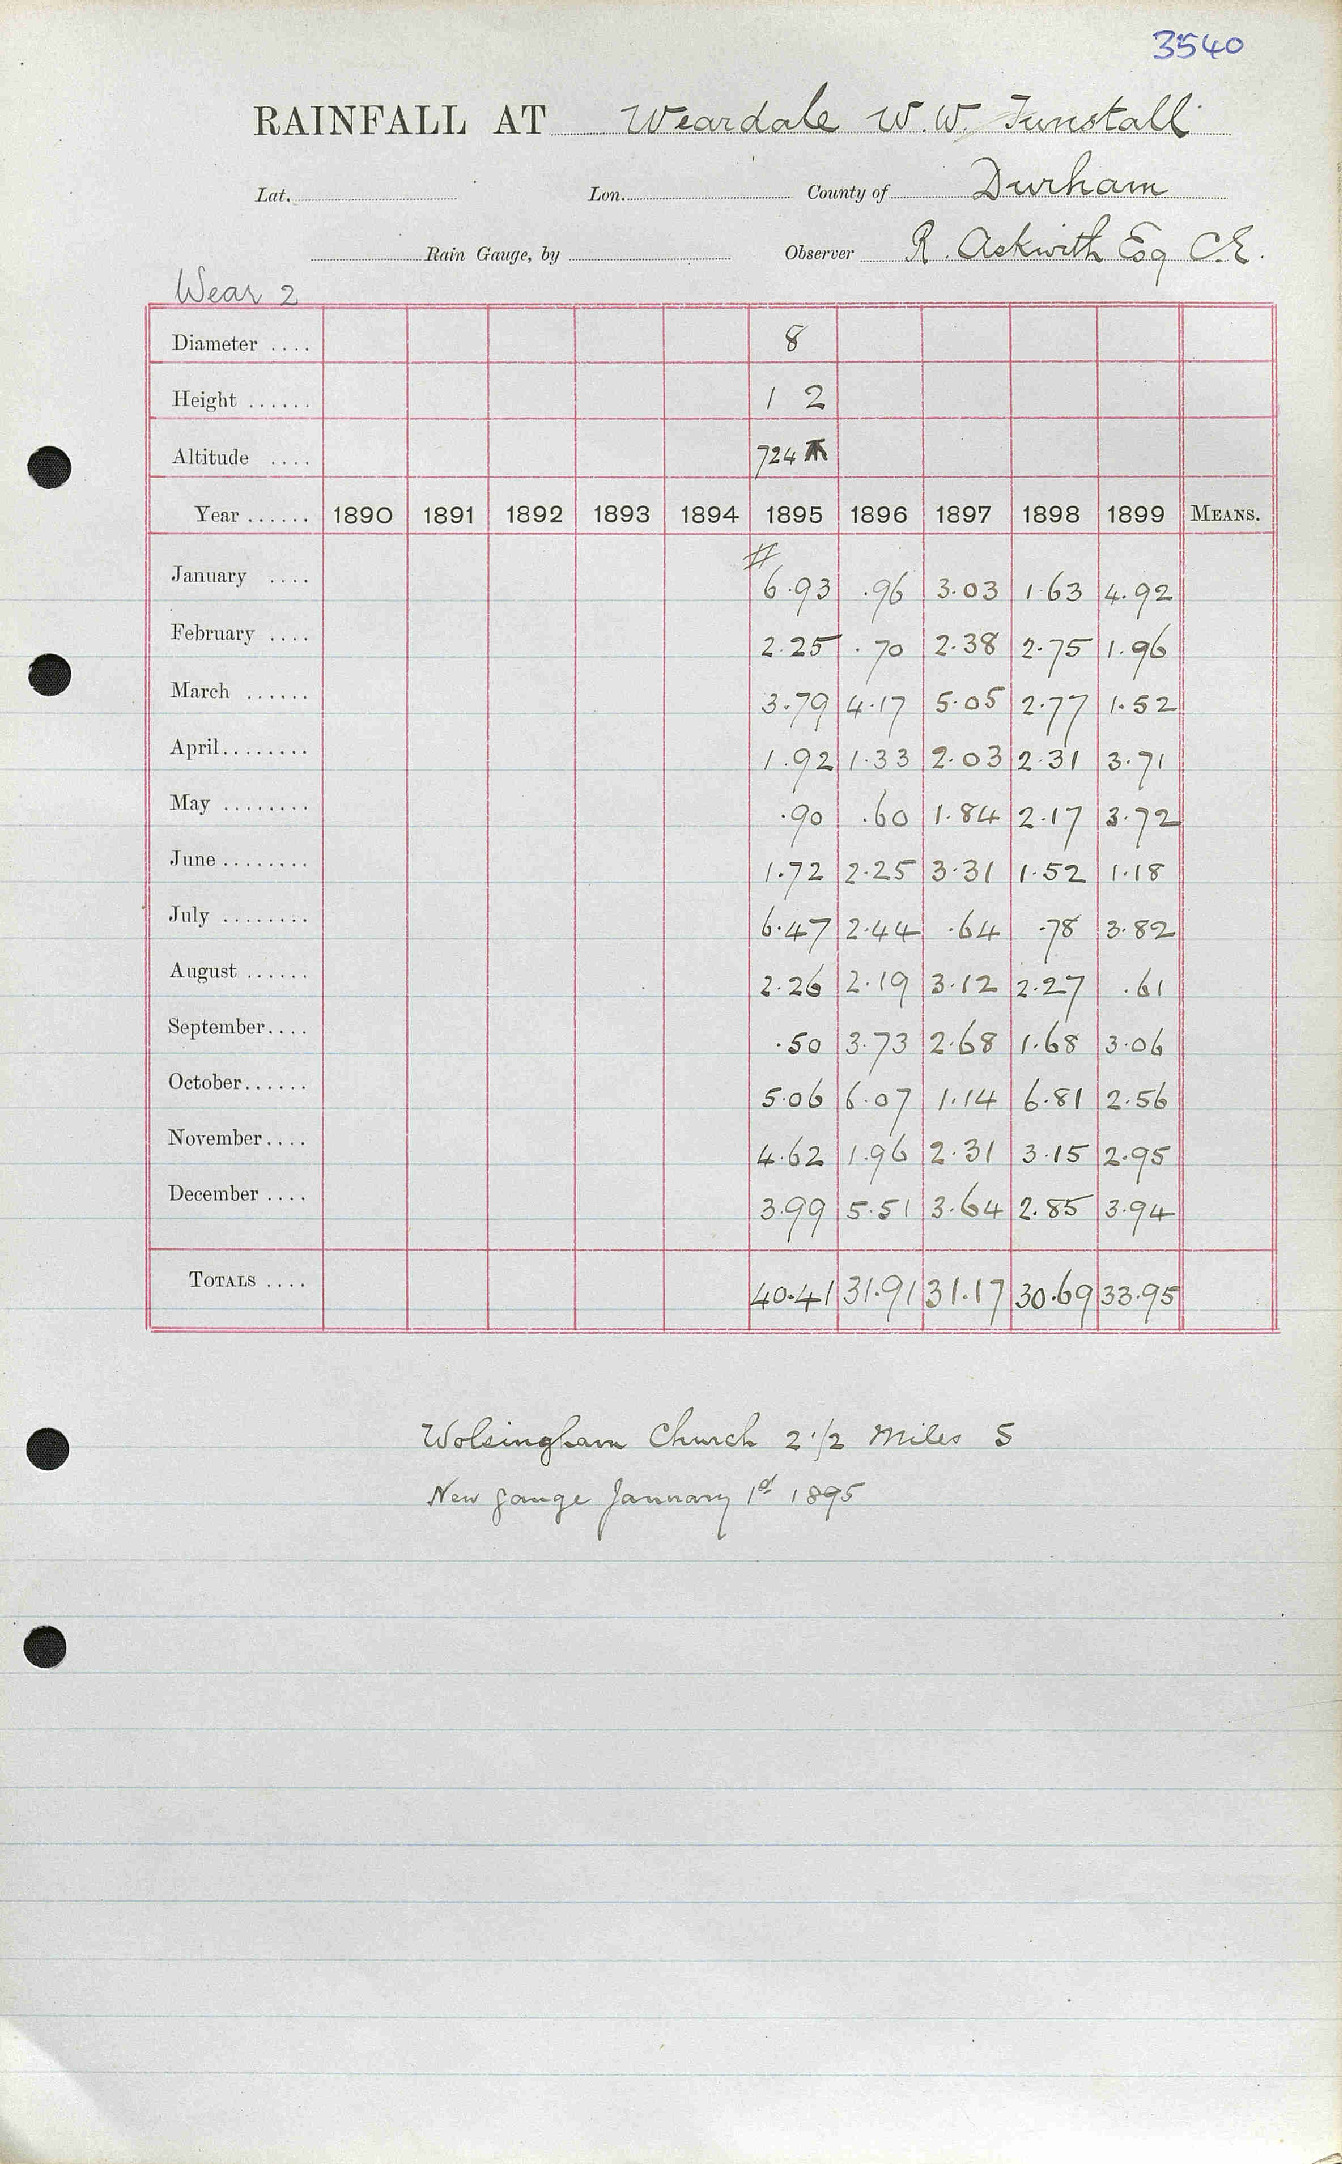 3540
RAINFALL AT Weardale W.W. Tunstall
Lat. Lon. County of Durham
Rain Gauge, by Observer R. Askwith Esq C.E.
Wear 2
Diameter .... 8
Height ...... 1 2
Altitude .... 724
Year ...... 1890 1891 1892 1893 1894 1895 1896 1897 1898 1899 MEANS.
#
January .... 6.93 .96 3.03 1.63 4.92
February .... 2.25 .70 2.38 2.75 1.96
March ...... 3.79 4.17 5.05 2.77 1.52
April........ 1.92 1.33 2.03 2.31 3.71
May ........ .90 .60 1.84 2.17 3.72
June ........ 1.72 2.25 3.31 1.52 1.18
July ........ 6.47 2.44 .64 .78 3.82
August ...... 2.26 2.19 3.12 2.27 .61
September.... .50 3.73 2.68 1.68 3.06
October...... 5.06 6.07 1.14 6.81 2.56
November.... 4.62 1.96 2.31 3.15 2.95
December .... 3.99 5.51 3.64 2.85 3.94
TOTALS .... 40.41 31.91 31.17 30.69 33.95
Wolsingham Church 2 1/2 Miles S
New gauge January 1st 1895